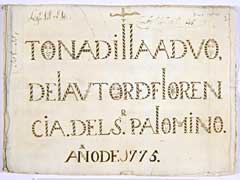 TONADIllA A DVO,
DEl AVTOR D FlOREN
CIA. DEL S.R PAlOMINO.
AÑO DE 1775.